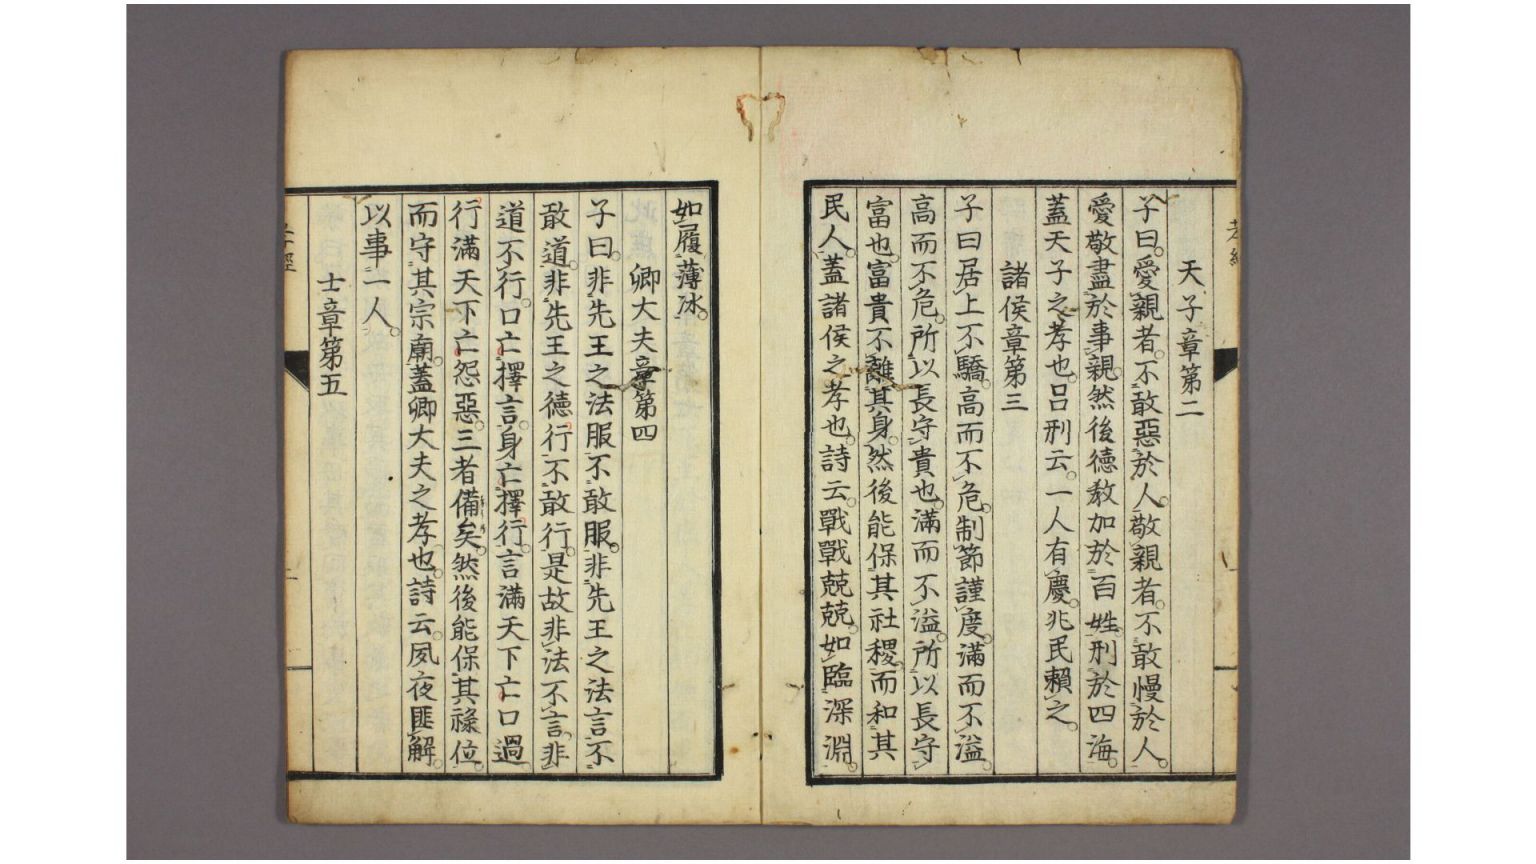 天子章第二
子曰愛親者不敢惡於人敬親者不敢慢於人
愛敬盡於事親然後德敎加於百姓刑於四海
蓋天子之孝也吕刑云一人有慶兆民賴之
諸侯章第三
子曰居上不驕高而不危制節謹度滿而不溢
高而不危所以長守貴也滿而不溢所以長守
富也富貴不離其身然後能保其社稷而和其
民人蓋諸侯之孝也詩云戰戰兢兢如臨深淵
如履薄冰
卿大夫章第四
子曰非先王之法服不敢服非先王之法言不
敢道非先王之德行不敢行是故非法不言非
道不行口亡擇言身亡擇行言滿天下亡口過
行滿天下亡怨惡三者備矣然後能保其祿位
而守其宗廟蓋卿大夫之孝也詩云夙夜匪解
以事一人
士章第五